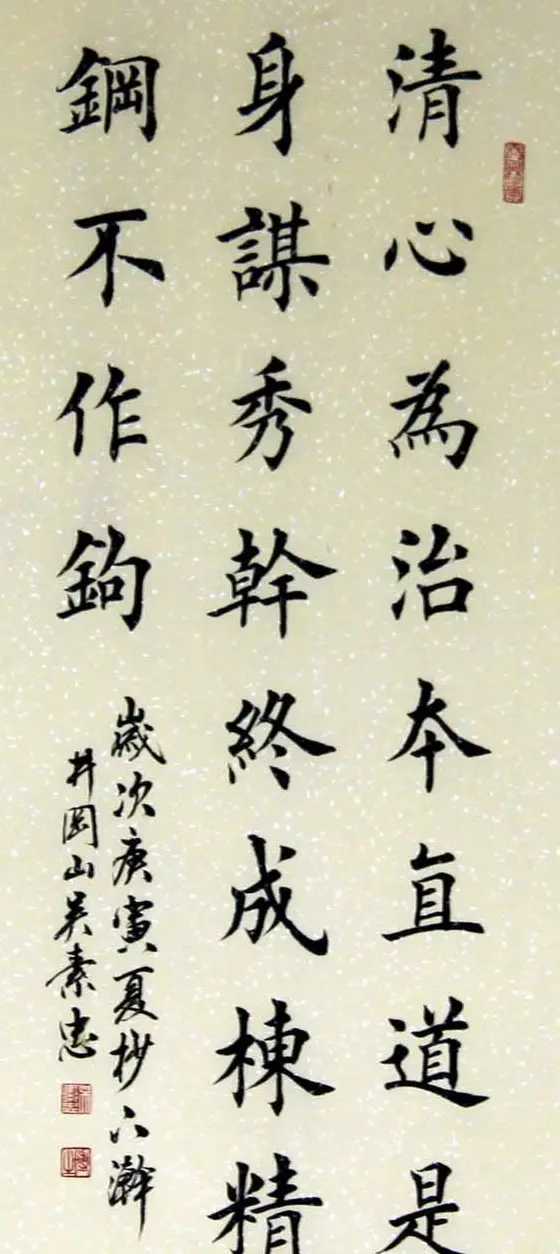 清心為治本直道是
身謀秀幹終成棟精
鋼不作鉤
歲次庚寅夏杪下澣
井岡山吳素忠